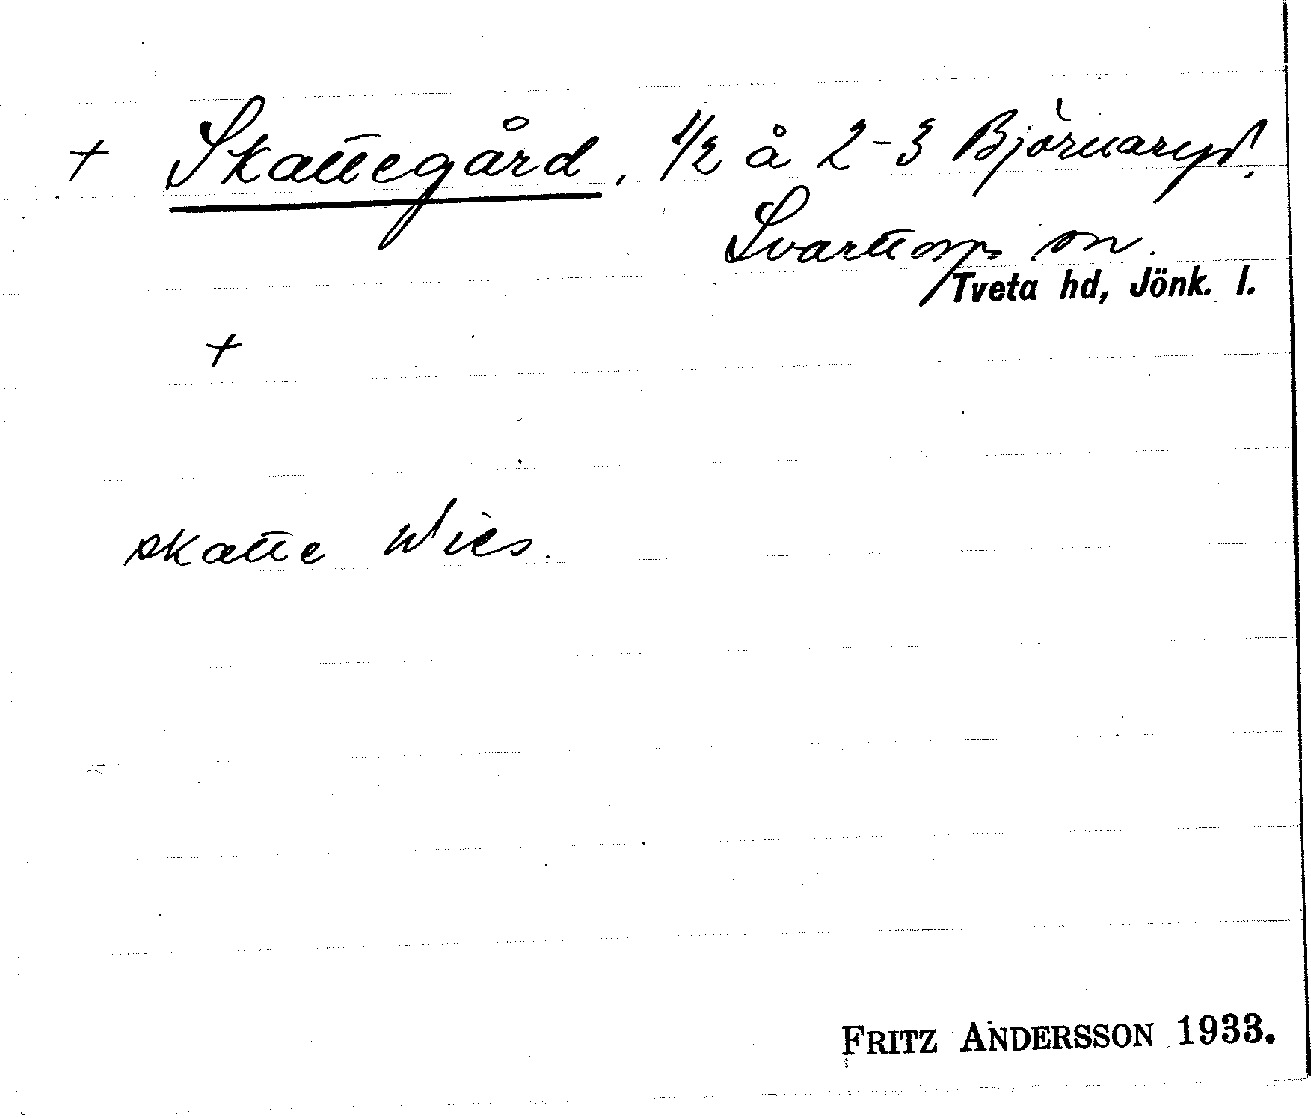 + Skattegård, 1/2 å 2-3 Björnaryd.
Svarttorp sn.
Tveta hd, Jönk. l.
+
skatte
FRITZ ANDERSSON 1933.